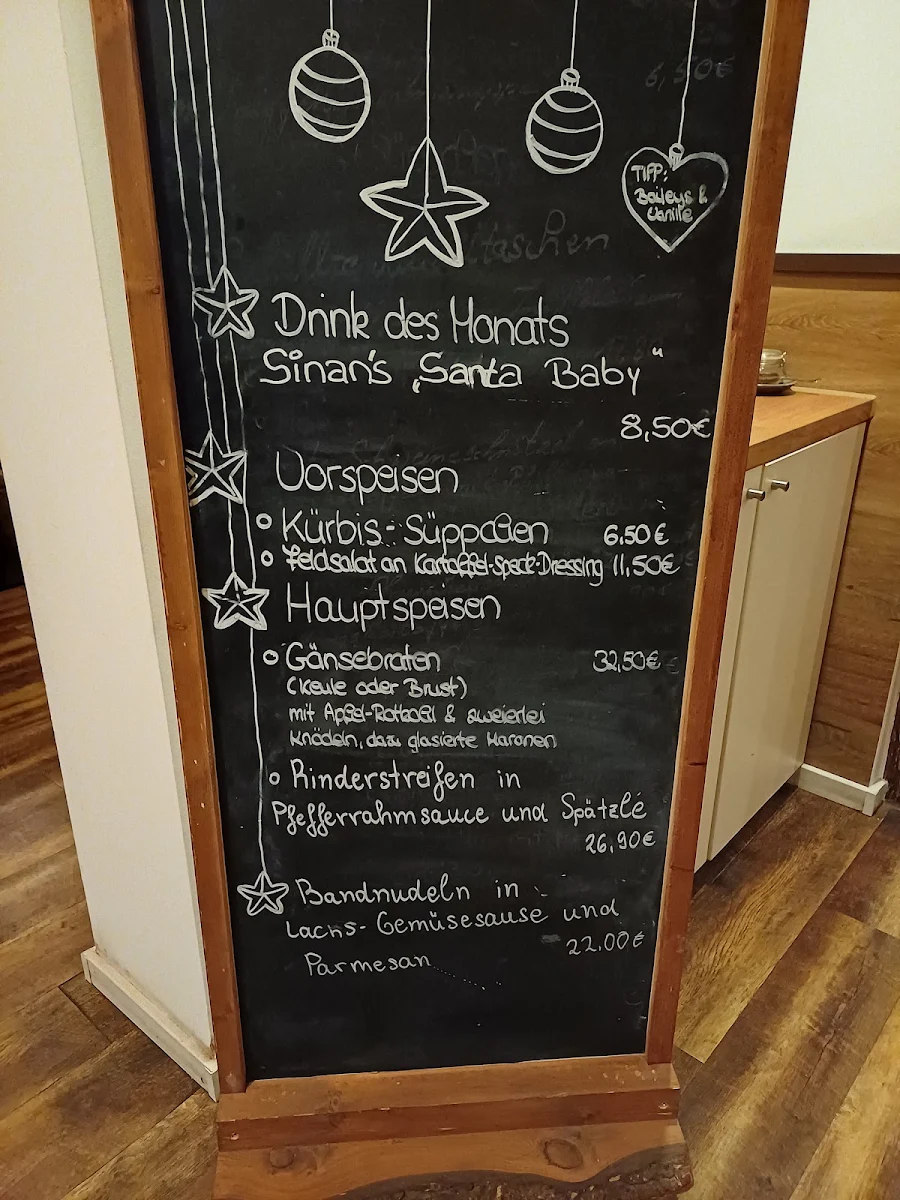 TIPP:
Baileys &
Vanille
Drink des Monats
Sinan's „Santa Baby“
8,50€
Vorspeisen
Kürbis-Süppchen 6,50€
Feldsalat an Kartoffel-Speck-Dressing 11,50€
Hauptspeisen
Gänsebraten 32,50€
(Keule oder Brust)
mit Apfel-Rotkohl & zweierlei
Knödeln, dazu glasierte Maronen
Rinderstreifen in
Pfefferrahmsauce und Spätzle
26,90€
Bandnudeln in
Lachs-Gemüsesause und
22.00€
Parmesan